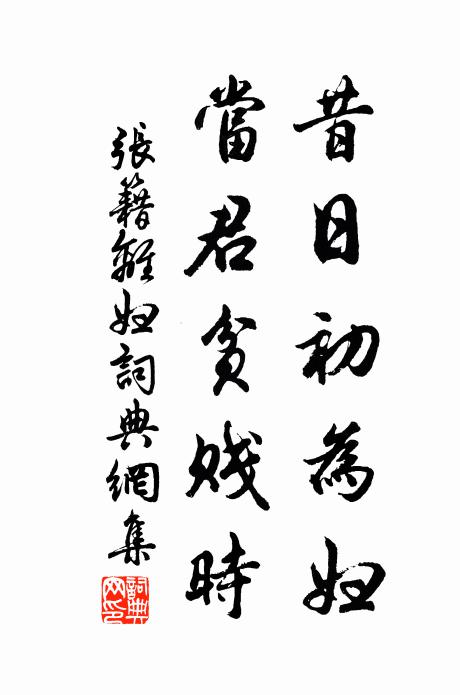 昔日初為妇
當君貧賤時
張籍離妇詞典網集
詞典网印